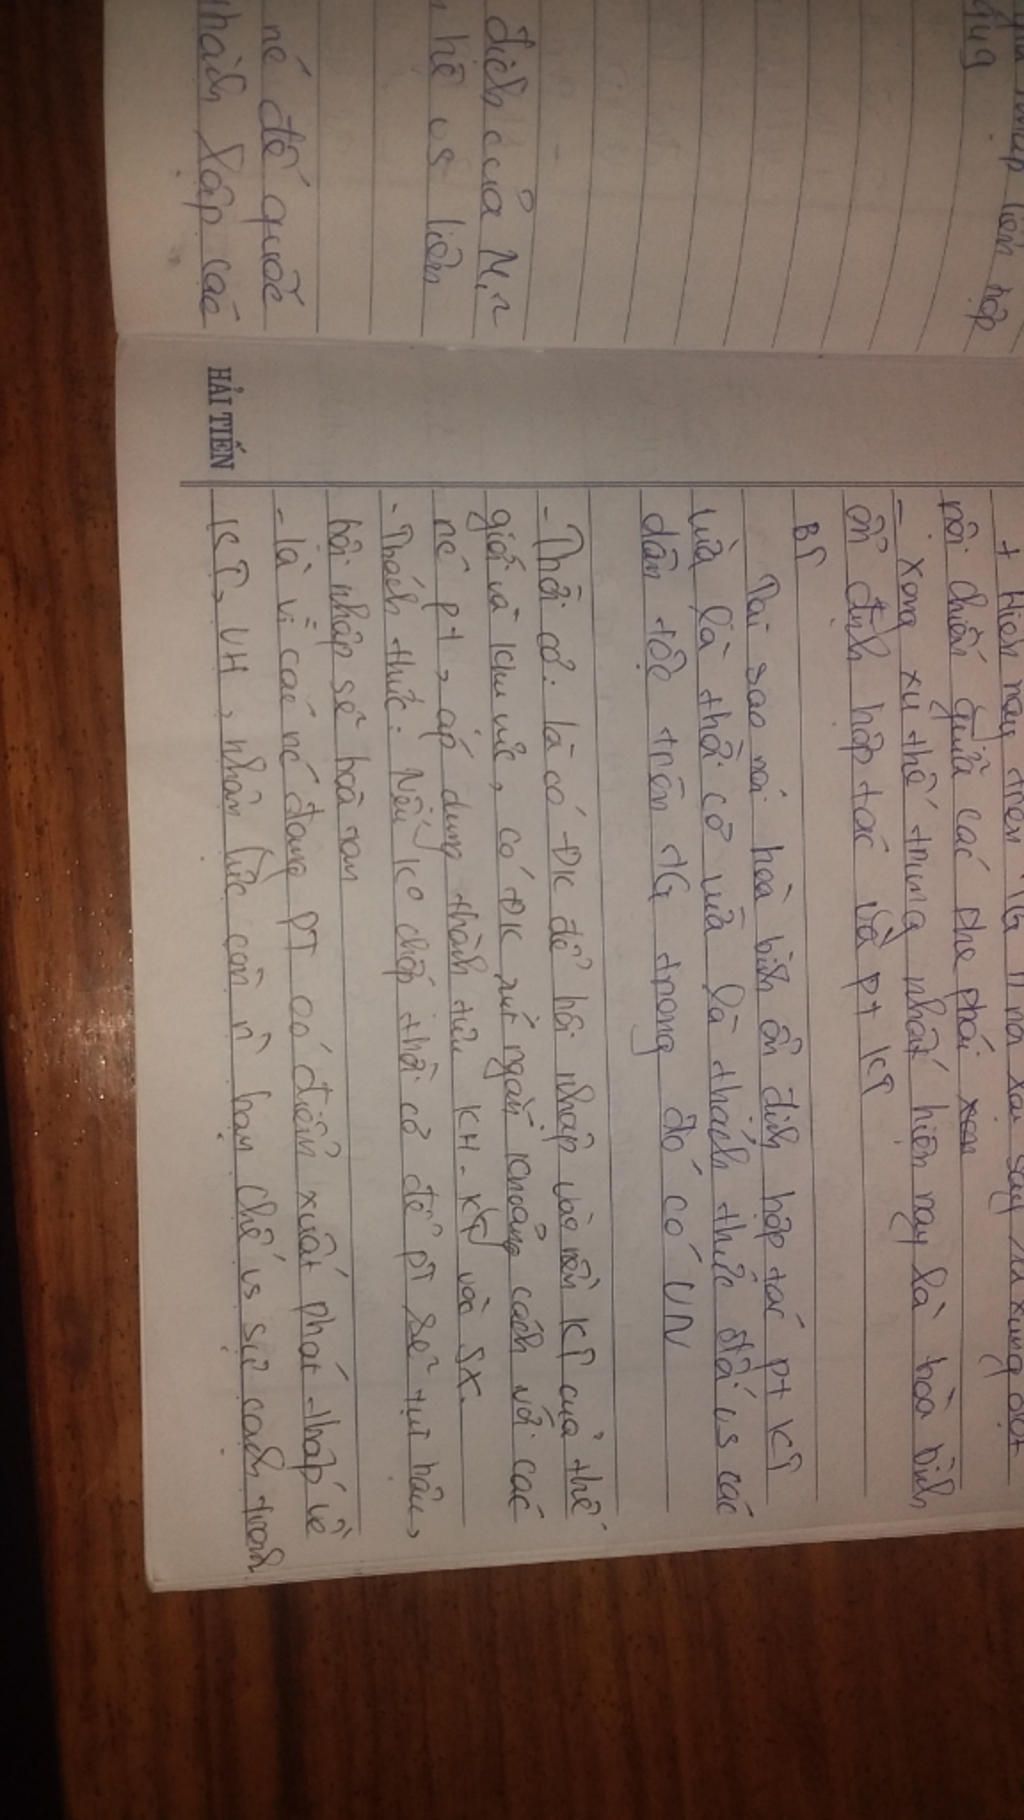 điểm của M, n
hệ vs liên
nc đế quốc
thành lập các
liên hợp
+ Hiện nay trên TG n nơi xảy ra xung đột
nội chiến giữa các phe phái
- xong xu thế trung nhất hiện nay là hòa bình
ổn định hợp tác và pt KT
BT
Tại sao nói hòa bình ổn định hợp tác pt KT
vừa là thời cơ vừa là thách thức đối vs các
dân tộc trên TG trong đó có VN
- Thời cơ: là có ĐK để hội nhập vào nền KT của thế
giới và khu vực, có ĐK rút ngắn khoảng cách với các
nc pt, áp dụng thành tựu KH-KT vào SX.
- Thách thức: Nếu ko chớp thời cơ để pT sẽ tụt hậu,
hội nhập sẽ hoà tan
- là vì các nc đang PT có điểm xuất phát thấp về
KT, VH, nhân lực còn n hạn chế vs sự cạnh tranh
HẢI TIẾN